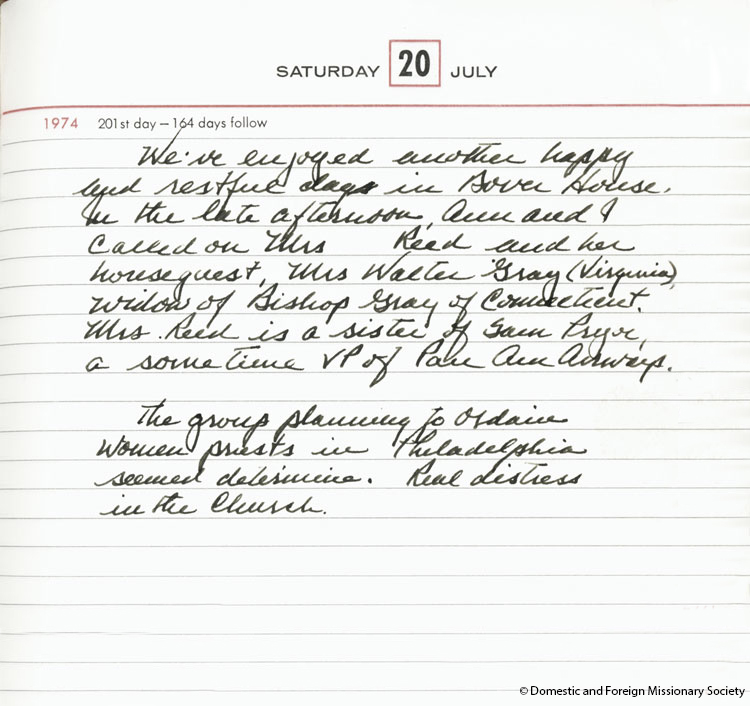 SATURDAY 20 JULY
1974 201st day – 164 days follow
We've enjoyed another happy
and restful days in Dover House.
In the late afternoon, Ann and I
called on Mrs Reed and her
houseguest, Mrs Walter Gray (Virginia)
widow of Bishop Gray of Connecticut.
Mrs. Reed is a sister of Sam Pryor,
a some time VP of Pan Am Airways.
The group planning to Ordain
Women priests in Philadelphia
seemed determine. Real distress
in the Church.
© Domestic and Foreign Missionary Society